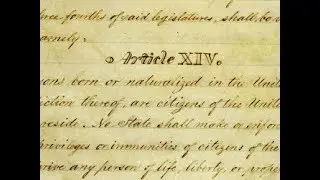 three fourths of said legislatures, shall be v
namely.
Article XIV.
ons born or naturalized in the Unit
iction thereof, are citizens of the Unite
reside. No State shall make or enfor
privileges or immunities of citizens of th
rive any person of life, liberty, or prope